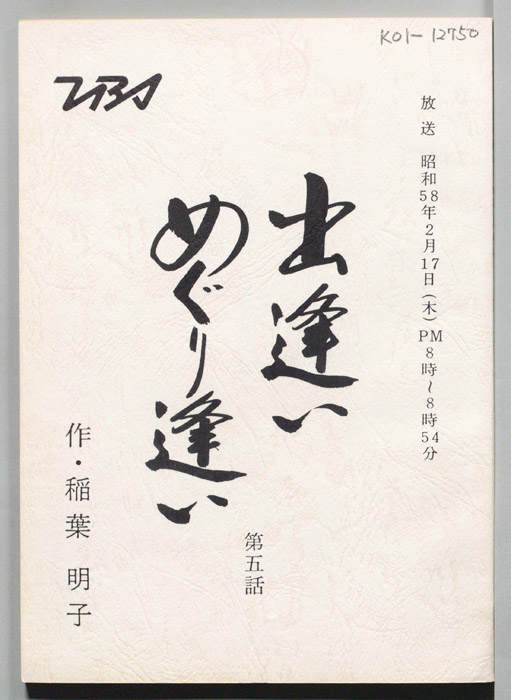 K01-12750
TBS
放送 昭和58年2月17日(木)PM8時〜8時54分
出逢い
めぐり逢い
第五話
作・稲葉 明子